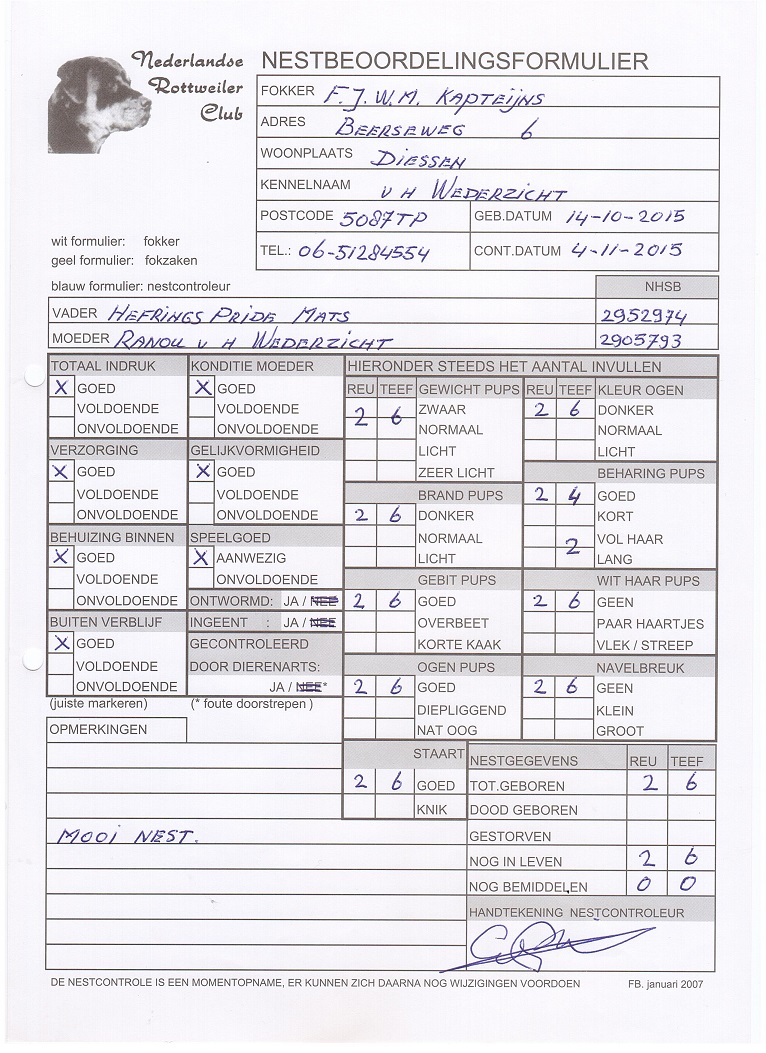 Nederlandse
Rottweiler
Club
NESTBEOORDELINGSFORMULIER
FOKKER F.J.W.M. KAPTEIJNS
ADRES BEERSEWEG 6
WOONPLAATS DIESSEN
KENNELNAAM v H WEDERZICHT
POSTCODE 5087TP GEB.DATUM 14-10-2015
TEL.: 06-51284554 CONT.DATUM 4-11-2015
wit formulier: fokker
geel formulier: fokzaken
blauw formulier: nestcontroleur
NHSB
VADER HEFRINGS PRIDE MATS 2952974
MOEDER RANOU v H WEDERZICHT 2905793
TOTAAL INDRUK
X GOED
VOLDOENDE
ONVOLDOENDE
KONDITIE MOEDER
X GOED
VOLDOENDE
ONVOLDOENDE
VERZORGING
X GOED
VOLDOENDE
ONVOLDOENDE
GELIJKVORMIGHEID
X GOED
VOLDOENDE
ONVOLDOENDE
BEHUIZING BINNEN
X GOED
VOLDOENDE
ONVOLDOENDE
SPEELGOED
X AANWEZIG
ONVOLDOENDE
ONTWORMD: JA / NEE
INGEENT : JA / NEE
BUITEN VERBLIJF
X GOED
VOLDOENDE
ONVOLDOENDE
GECONTROLEERD
DOOR DIERENARTS:
JA / NEE*
(juiste markeren)
(* foute doorstrepen )
HIERONDER STEEDS HET AANTAL INVULLEN
REU TEEF GEWICHT PUPS
2 6 ZWAAR
NORMAAL
LICHT
ZEER LICHT
BRAND PUPS
2 6 DONKER
NORMAAL
LICHT
GEBIT PUPS
2 6 GOED
OVERBEET
KORTE KAAK
OGEN PUPS
2 6 GOED
DIEPLIGGEND
NAT OOG
STAART
2 6 GOED
KNIK
REU TEEF KLEUR OGEN
2 6 DONKER
NORMAAL
LICHT
BEHARING PUPS
2 4 GOED
KORT
2 VOL HAAR
LANG
WIT HAAR PUPS
2 6 GEEN
PAAR HAARTJES
VLEK / STREEP
NAVELBREUK
2 6 GEEN
KLEIN
GROOT
OPMERKINGEN
MOOI NEST.
NESTGEGEVENS REU TEEF
TOT.GEBOREN 2 6
DOOD GEBOREN
GESTORVEN
NOG IN LEVEN 2 6
NOG BEMIDDELEN 0 0
HANDTEKENING NESTCONTROLEUR
DE NESTCONTROLE IS EEN MOMENTOPNAME, ER KUNNEN ZICH DAARNA NOG WIJZIGINGEN VOORDOEN
FB. januari 2007